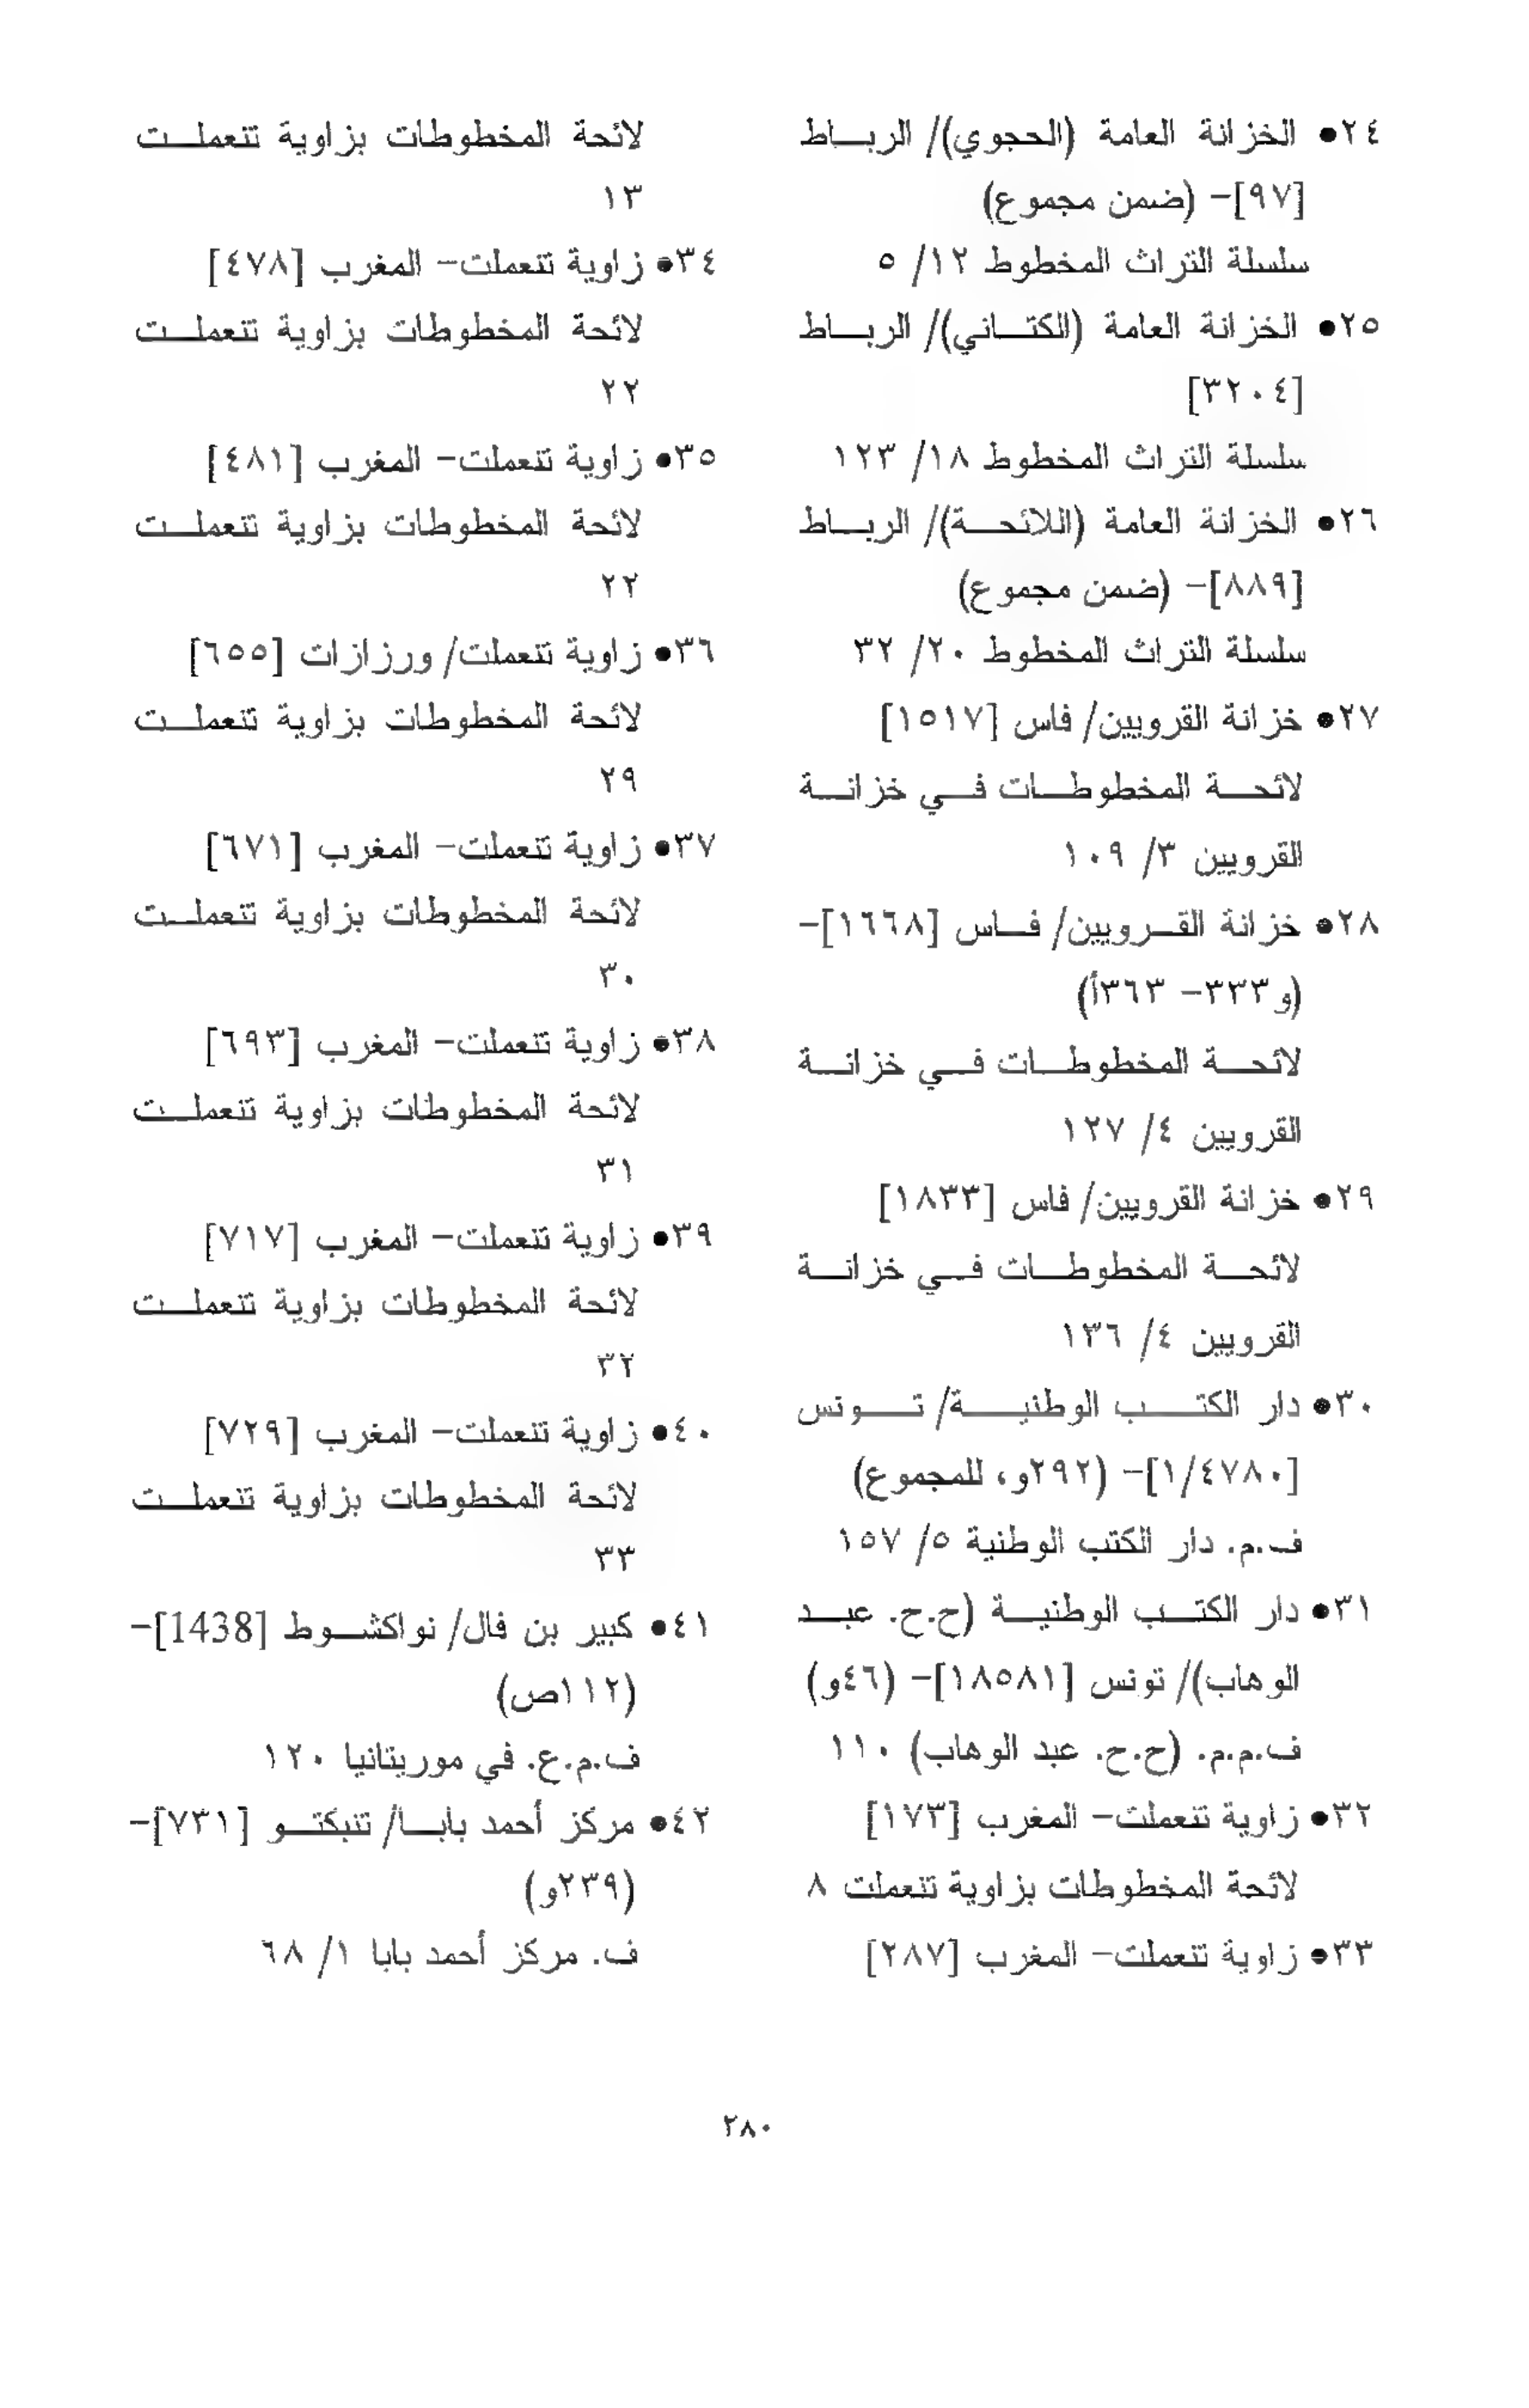 ٢٤● الخزانة العامة (الحجوي)/ الرباط
[٩٧]- (ضمن مجموع)
سلسلة التراث المخطوط ١٢/ ٥
٢٥● الخزانة العامة (الكتاني)/ الرباط
[٣٢٠٤]
سلسلة التراث المخطوط ١٨/ ١٢٣
٢٦● الخزانة العامة (اللائحة)/ الرباط
[٨٨٩]- (ضمن مجموع)
سلسلة التراث المخطوط ٢٠/ ٣٢
٢٧● خزانة القرويين/ فاس [١٥١٧]
لائحة المخطوطات في خزانة
القرويين ٣/ ١٠٩
٢٨● خزانة القرويين/ فاس [١٦٦٨]-
(و٣٣٣- ٣٦٣أ)
لائحة المخطوطات في خزانة
القرويين ٤/ ١٢٧
٢٩● خزانة القرويين/ فاس [١٨٣٣]
لائحة المخطوطات في خزانة
القرويين ٤/ ١٣٦
٣٠● دار الكتب الوطنية/ تونس
[١/٤٧٨٠]- (٢٩٢و، للمجموع)
ف.م. دار الكتب الوطنية ٥/ ١٥٧
٣١● دار الكتب الوطنية (ح.ح. عبد
الوهاب)/ تونس [١٨٥٨١]- (٤٦و)
ف.م.م. (ح.ح. عبد الوهاب) ١١٠
٣٢● زاوية تنعملت- المغرب [١٧٣]
لائحة المخطوطات بزاوية تنعملت ٨
٣٣● زاوية تنعملت- المغرب [٢٨٧]
لائحة المخطوطات بزاوية تنعملت
١٣
٣٤● زاوية تنعملت- المغرب [٤٧٨]
لائحة المخطوطات بزاوية تنعملت
٢٢
٣٥● زاوية تنعملت- المغرب [٤٨١]
لائحة المخطوطات بزاوية تنعملت
٢٢
٣٦● زاوية تنعملت/ ورزازات [٦٥٥]
لائحة المخطوطات بزاوية تنعملت
٢٩
٣٧● زاوية تنعملت- المغرب [٦٧١]
لائحة المخطوطات بزاوية تنعملت
٣٠
٣٨● زاوية تنعملت- المغرب [٦٩٣]
لائحة المخطوطات بزاوية تنعملت
٣١
٣٩● زاوية تنعملت- المغرب [٧١٧]
لائحة المخطوطات بزاوية تنعملت
٣٢
٤٠● زاوية تنعملت- المغرب [٧٢٩]
لائحة المخطوطات بزاوية تنعملت
٣٣
٤١● كبير بن فال/ نواكشوط [1438]-
(١١٢ص)
ف.م.ع. في موريتانيا ١٢٠
٤٢● مركز أحمد بابا/ تنبكتو [٧٣١]-
(٢٣٩و)
ف. مركز أحمد بابا ١/ ٦٨
٢٨٠